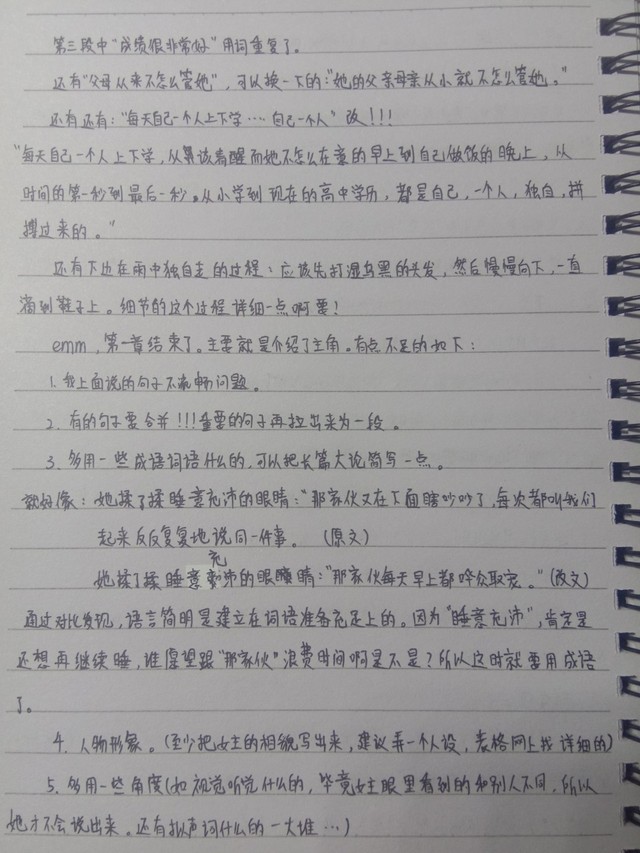 第三段中“成绩很非常好”用词重复了。
还有“父母从来不怎么管她”，可以换一下的：“她的父亲母亲从小就不怎么管她。”
还有还有：“每天自己一个人上下学…自己一个人”改!!!
“每天自己一个人上下学，从算该着醒而她不怎么在意的早上到自己做饭的晚上，从
时间的第一秒到最后一秒。从小学到现在的高中学历，都是自己，一个人，独自，拼
搏过来的。”
还有下边在雨中独自走的过程：应该先打湿乌黑的头发，然后慢慢向下，一直
滴到鞋子上。细节的这个过程详细一点啊要！
emm，第一章结束了。主要就是介绍了主角。有点不足的如下：
1.我上面说的句子不流畅问题。
2.有的句子要合并!!!重要的句子再拉出来为一段。
3.多用一些成语词语什么的，可以把长篇大论简写一点。
就好像：她揉了揉睡意充沛的眼睛：“那家伙又在下面瞎吵吵了，每次都叫我们
起来反反复复地说同一件事。（原文）
她揉了揉睡意充沛的眼睛：“那家伙每天早上都哗众取宠。”（改文）
通过对比发现，语言简明是建立在词语准备充足上的。因为“睡意充沛”，肯定是
还想再继续睡，谁愿望跟“那家伙”浪费时间啊是不是？所以这时就要用成语
了。
4.人物形象。（至少把女主的相貌写出来，建议弄一个人设，表格网上找详细的）
5.多用一些角度（如视觉听觉什么的，毕竟女主眼里看到的和别人不同，所以
她才不会说出来。还有拟声词什么的一大堆…）